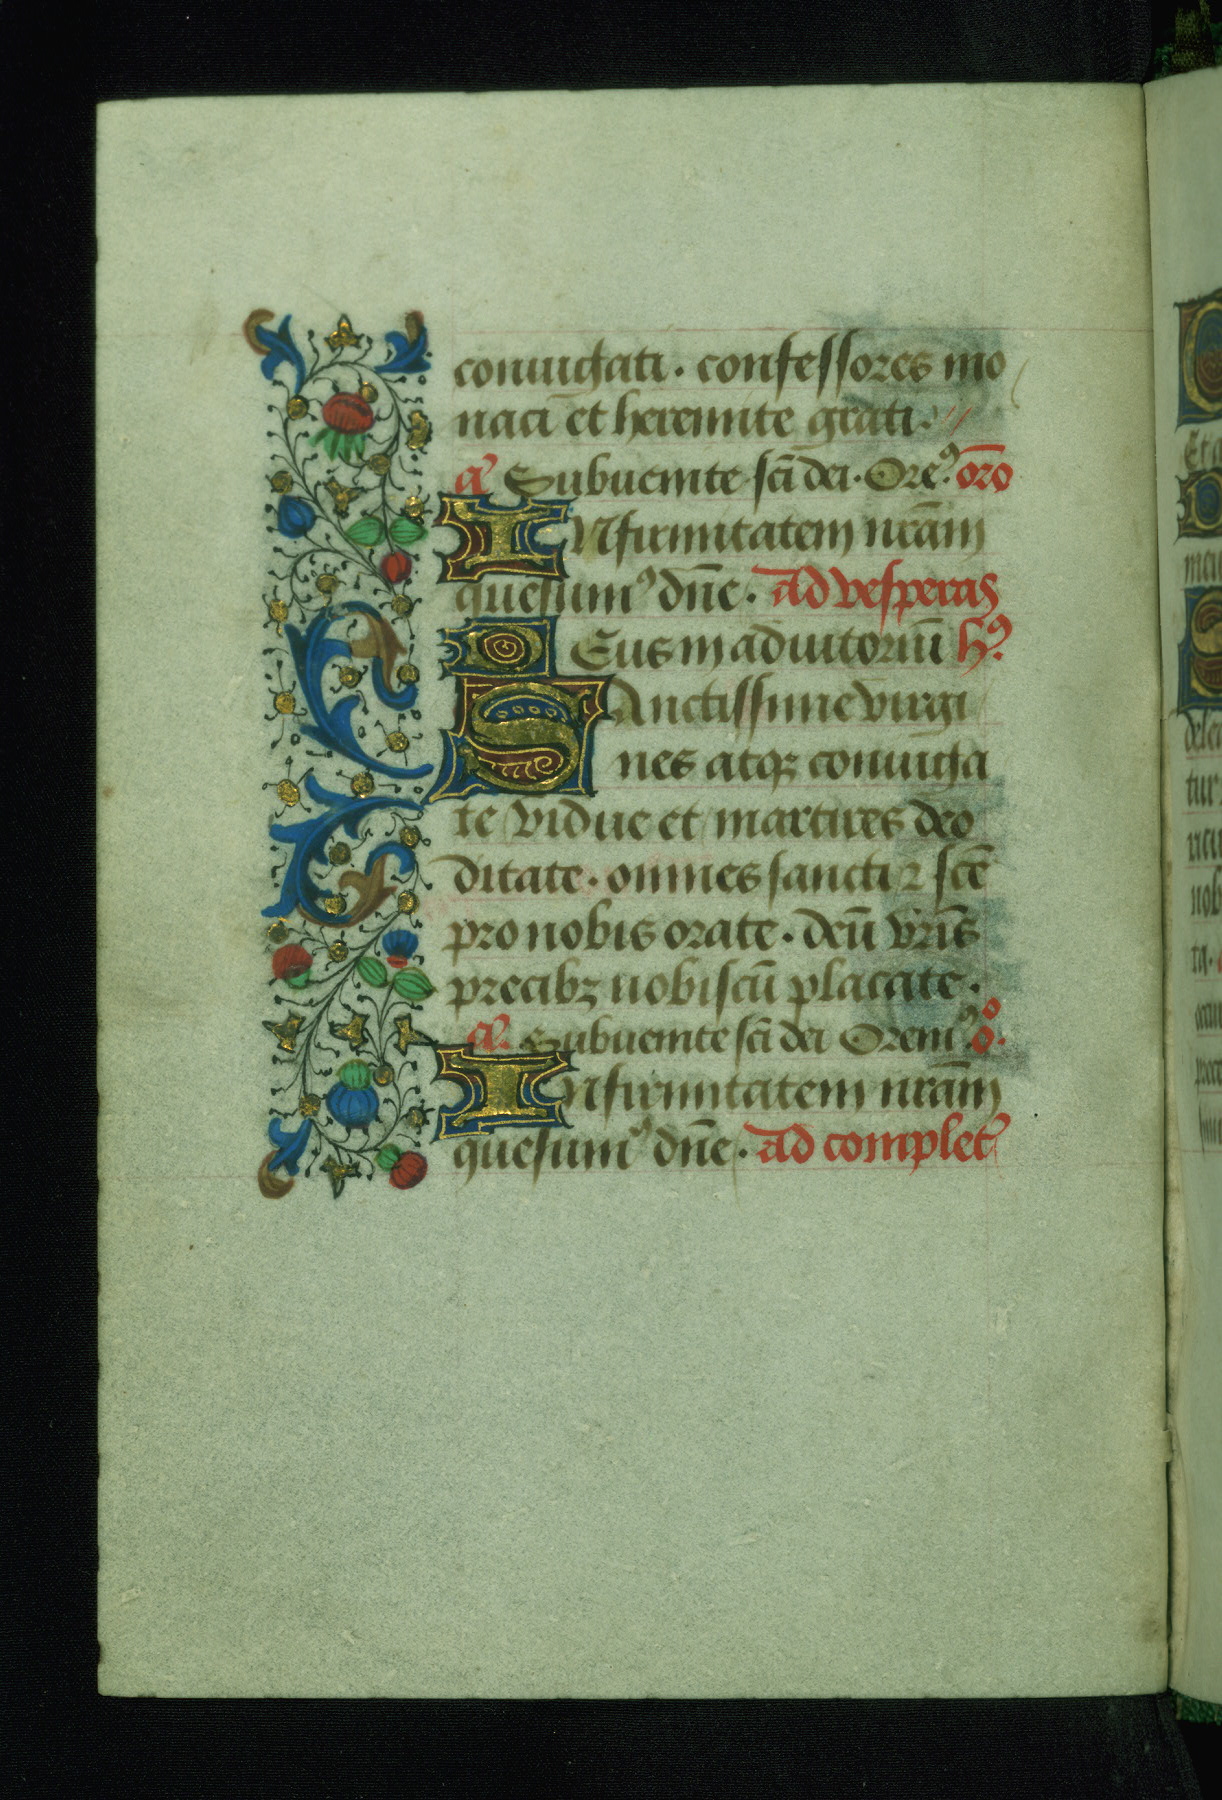 coniugati. confessores mo
naci et heremite grati.
a̅ Subuenite sc̅i dei. Ore⁹. oro̅
INfirmitatem nr̅am
quesum⁹ dn̅e. Ad vesperas
DEus in adiutoriu̅ h⁹.
SAnctissime virgi
nes atqꝫ coniuga
te vidue et martires deo
ditate. omnes sancti ⁊ sce̅
pro nobis orate. deu̅ vr̅is
precibꝫ nobiscu̅ placate.
a̅. Subuenite sc̅i dei Orem⁹. o̅.
INfirmitatem nr̅am
quesum⁹ dn̅e. Ad complet̅